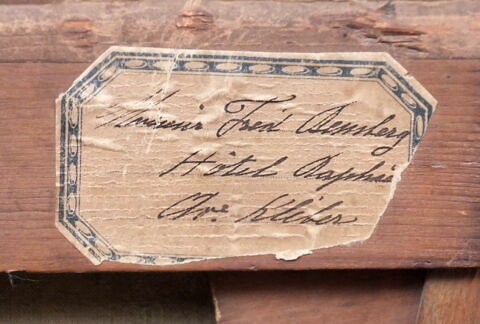 Monsieur Fred Bemberg
Hôtel Raphaë
Ave Kléber